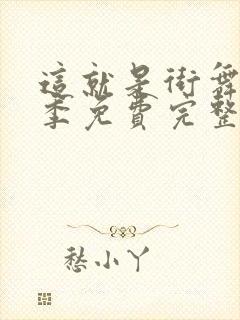 這就是街舞
季免費完整
愁小丫